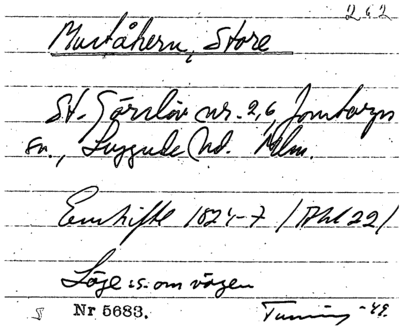 262
Muståkern, Store
St. Görslöv nr. 2,6, Jonstorps
sn., Luggude hd. Mlm.
Enskifte 1824-7 / Akt 22 /
Läge s. om vägen
Nr 5683.
-49.